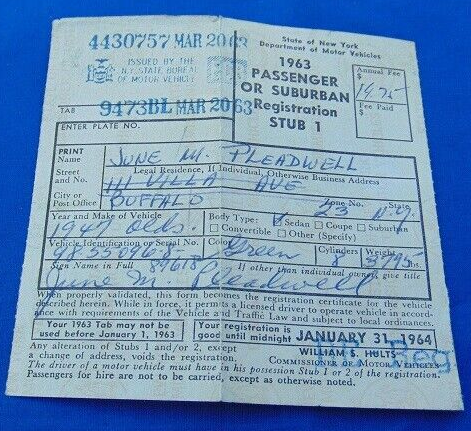 4430757 MAR 20 63
State of New York
Department of Motor Vehicles
ISSUED BY THE
N.Y. STATE BUREAU
OF MOTOR VEHICLE
1963
PASSENGER
OR SUBURBAN
Registration
STUB 1
Annual Fee
$
19.75
Fee Paid
$
TAB
9473BL MAR 20 63
ENTER PLATE NO.
PRINT
Name
JUNE M. PLEADWELL
Street and No.
Legal Residence, If Individual, Otherwise Business Address
111 VILLA AVE
City or Post Office
BUFFALO
Zone No.
23
State
N.Y.
Year and Make of Vehicle
1947 Olds.
Body Type: Sedan Coupe Suburban
Convertible Other (Specify)
Vehicle Identification or Serial No.
Color
Green
Cylinders
Weight
Sign Name in Full
If other than individual owner, give title
June M Pleadwell
When properly validated, this form becomes the registration certificate for the vehicle
described herein. While in force, it permits a licensed driver to operate vehicle in accordance
with requirements of the Vehicle and Traffic Law and subject to local ordinances.
Your 1963 Tab may not be
used before January 1, 1963
Your registration is
good until midnight
JANUARY 31, 1964
Any alteration of Stubs 1 and/or 2, except
a change of address, voids the registration.
WILLIAM S. HULTS
COMMISSIONER OF MOTOR VEHICLES
The driver of a motor vehicle must have in his possession Stub 1 or 2 of the registration.
Passengers for hire are not to be carried, except as otherwise noted.